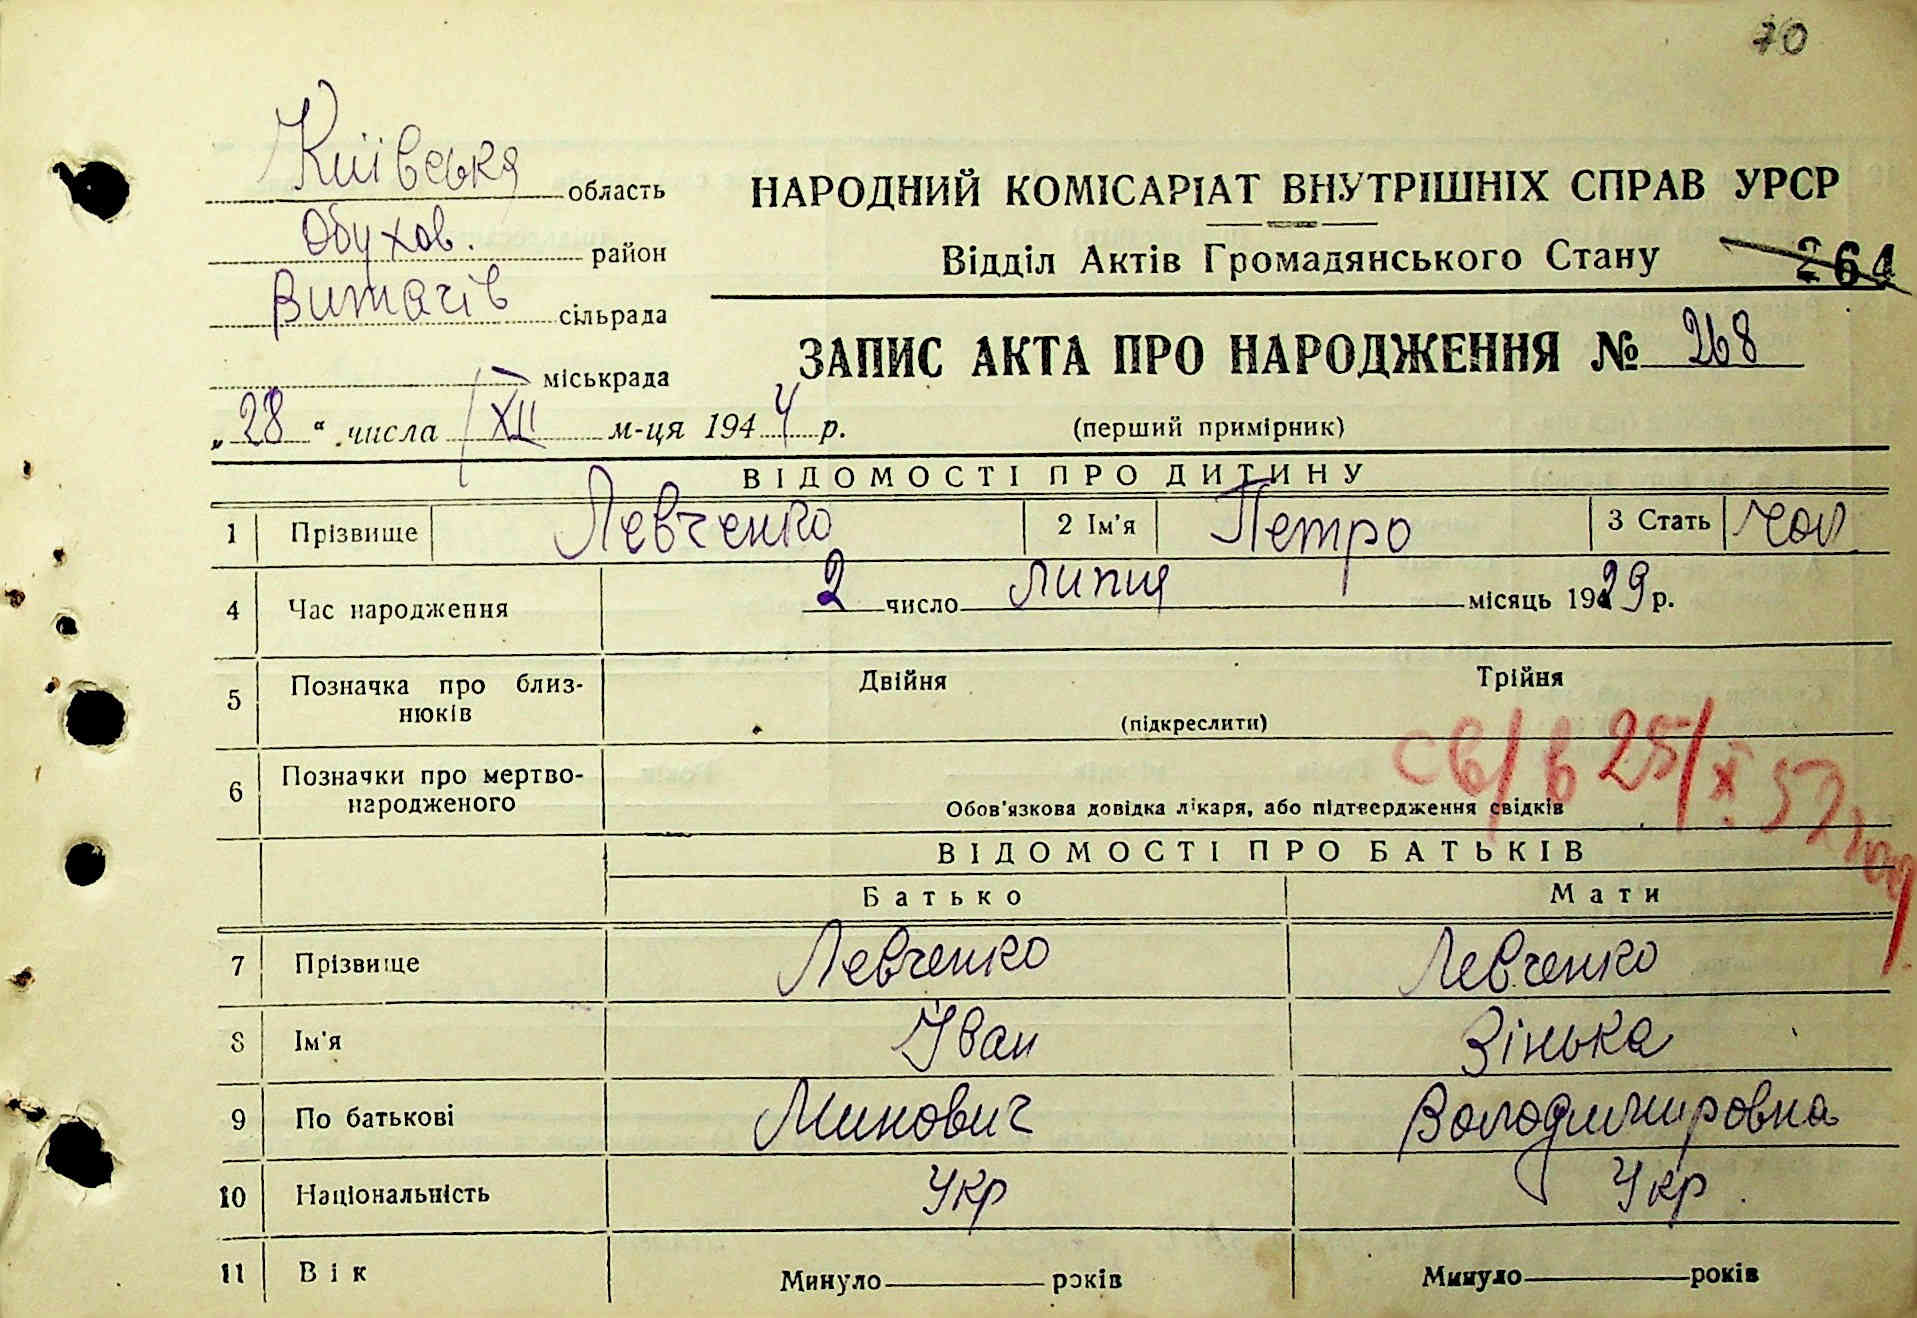 70
Київська область
Обухов. район
Витачів сільрада
міськрада
НАРОДНИЙ КОМІСАРІАТ ВНУТРІШНІХ СПРАВ УРСР
Відділ Актів Громадянського Стану
264
ЗАПИС АКТА ПРО НАРОДЖЕННЯ № 268
„28“ числа XII м-ця 1944 р. (перший примірник)
ВІДОМОСТІ ПРО ДИТИНУ
1 Прізвище Левченко 2 Ім'я Петро 3 Стать чол
4 Час народження 2 число липця місяць 1929 р.
5 Позначка про близнюків Двійня Трійня
(підкреслити)
6 Позначки про мертвонародженого
Обов'язкова довідка лікаря, або підтвердження свідків
св/в 25/X 52 год.
ВІДОМОСТІ ПРО БАТЬКІВ
Батько Мати
7 Прізвище Левченко Левченко
8 Ім'я Іван Зінька
9 По батькові Минович Володимировна
10 Національність Укр Укр.
11 Вік Минуло років Минуло років